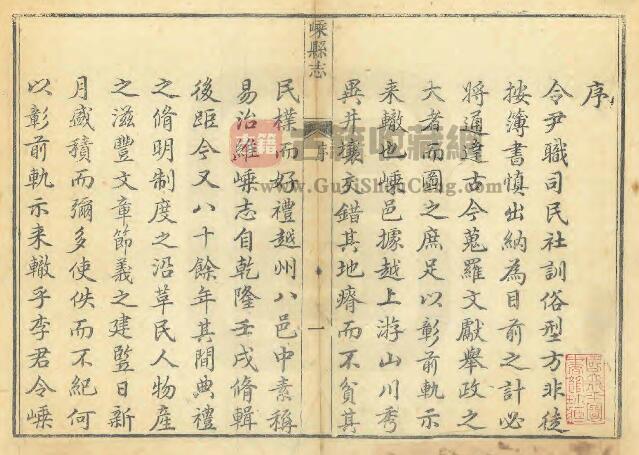 序
令尹職司民社訓俗型方非徒
按簿書慎出納為目前之計必
將通達古今蒐羅文獻舉政之
大者而圖之庶足以彰前軌示
来轍也嵊邑據越上游山川秀
異井壤交錯其地瘠而不貧其
嵊縣志
序
一
民樸而好禮越州八邑中素稱
易治維嵊志自乾隆壬戌脩輯
後距今又八十餘年其間典禮
之脩明制度之沿革民人物産
之滋豐文章節義之建竪日新
月盛積而彌多使佚而不紀何
以彰前軌示来轍乎李君令嵊
古籍收藏網
www.GuJiShouCang.com